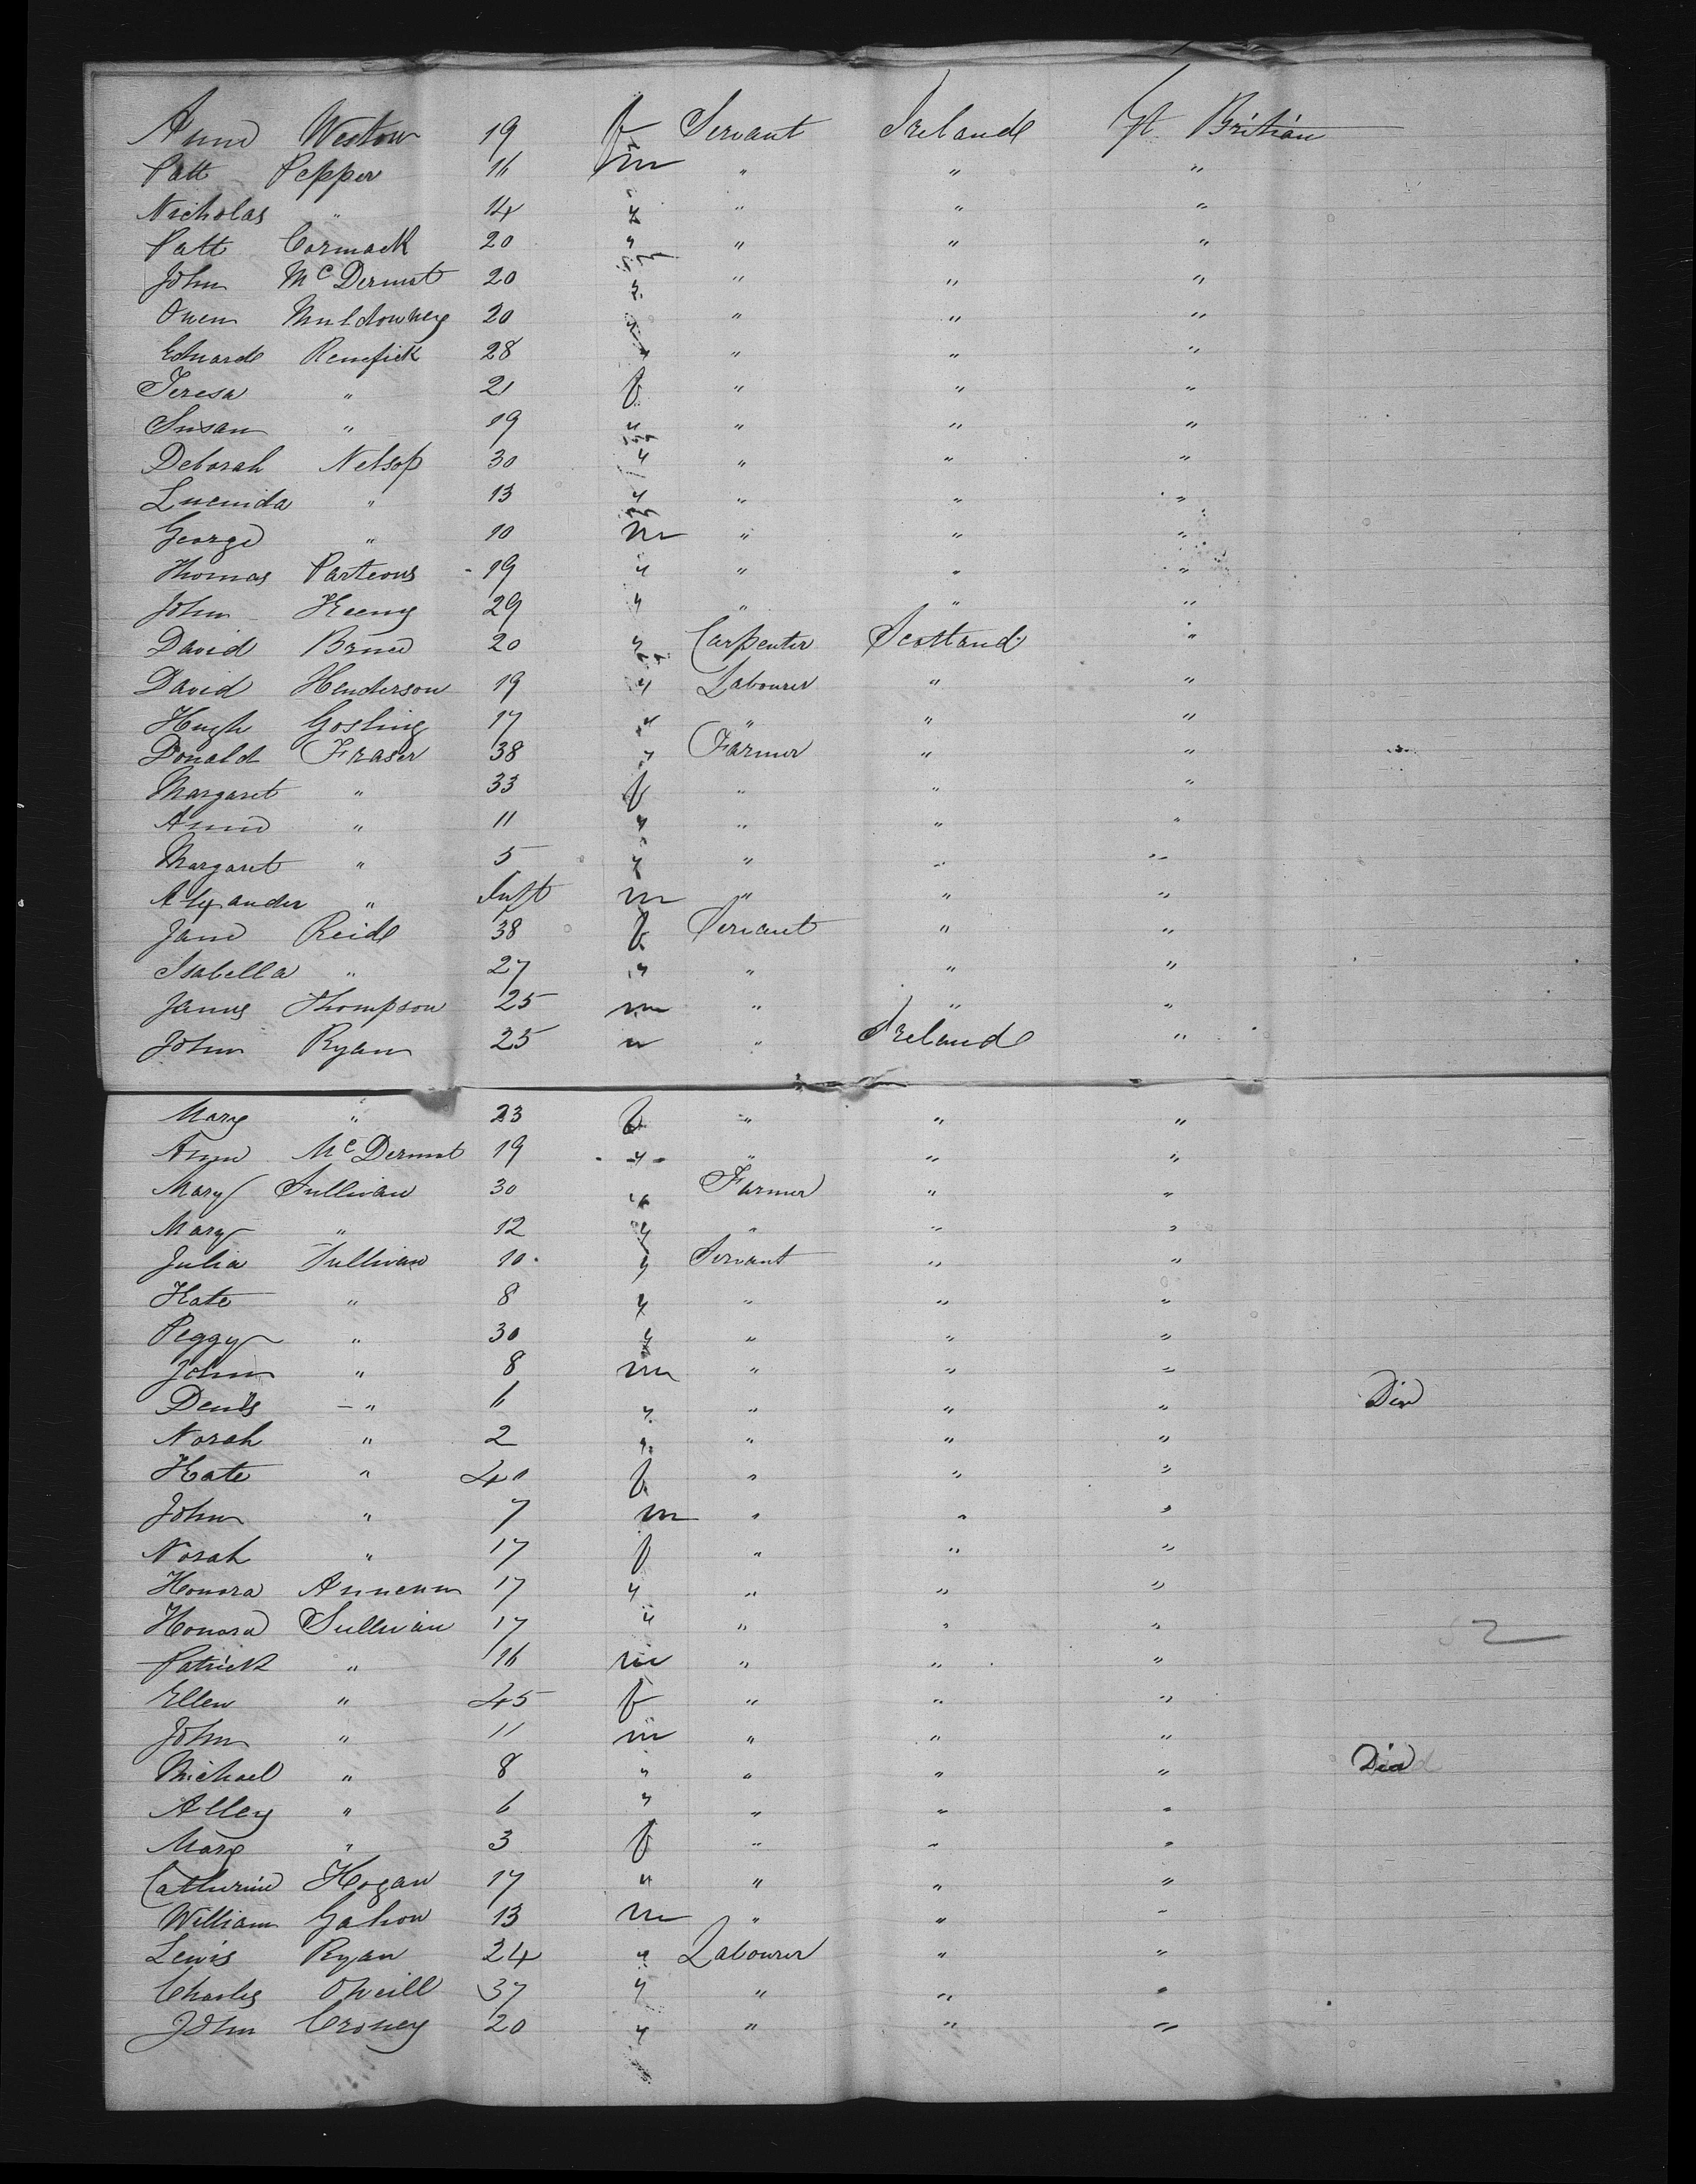 Anne Weston 19 f Servant Ireland Gt Britian
Patt Pepper 16 m " " "
Nicholas " 14 " " " "
Patt Cormack 20 " " " "
John McDermot 20 " " " "
Owen Muldowney 20 " " " "
Edward Renefick 28 " " " "
Teresa " 21 f " " "
Susan " 19 " " " "
Deborah Nelsop 30 " " " "
Lucinda " 13 " " " "
George " 10 m " " "
Thomas Parteous 19 " " " "
John Keeny 29 " " " "
David Bruce 20 " Carpenter Scotland "
David Henderson 19 " Labourer " "
Hugh Gosling 17 " " " "
Donald Fraser 38 " Farmer " "
Margaret " 33 f " " "
Anne " 11 " " " "
Margaret " 5 " " " "
Alexander " Inft m " " "
Jane Reid 38 f Servant " "
Isabella " 27 " " " "
James Thompson 25 m " " "
John Ryan 25 " " Ireland "
Mary " 23 f " " "
Anne McDermot 19 " " " "
Mary Sullivan 30 " Farmer " "
Mary " 12 " " " "
Julia Sullivan 10 " Servant " "
Kate " 8 " " " "
Peggy " 30 " " " "
John " 8 m " " "
Denis " 6 " " " " Die
Norah " 2 " " " "
Kate " 40 f " " "
John " 7 m " " "
Norah " 17 f " " "
Honora 17 " " " "
Honora Sullivan 17 " " " "
Patrick " 16 m " " "
Ellen " 45 f " " "
John " 11 m " " "
Michael " 8 " " " " Died
Alley " 6 " " " "
Mary " 3 f " " "
Catherine Hogan 17 " " " "
William Gahon 13 m " " "
Lewis Ryan 24 " Labourer " "
Charles ONeill 37 " " " "
John Croney 20 " " " "